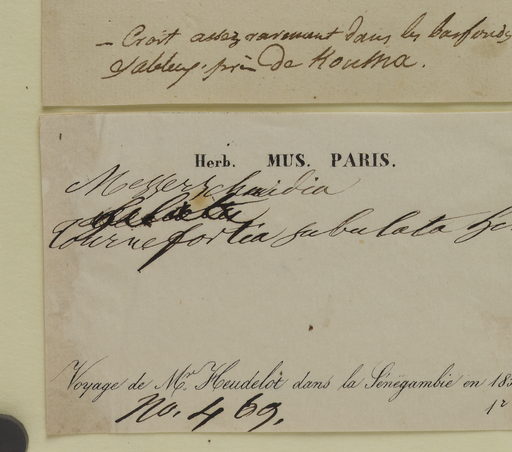 – Croit assez rarement dans les basfonds
sableux près de Koussa.
Herb. MUS. PARIS.
Messerschmidia
Tournefortia subulata
Voyage de Mr. Heudelot dans la Sénégambie en 183
1r
no. 469.